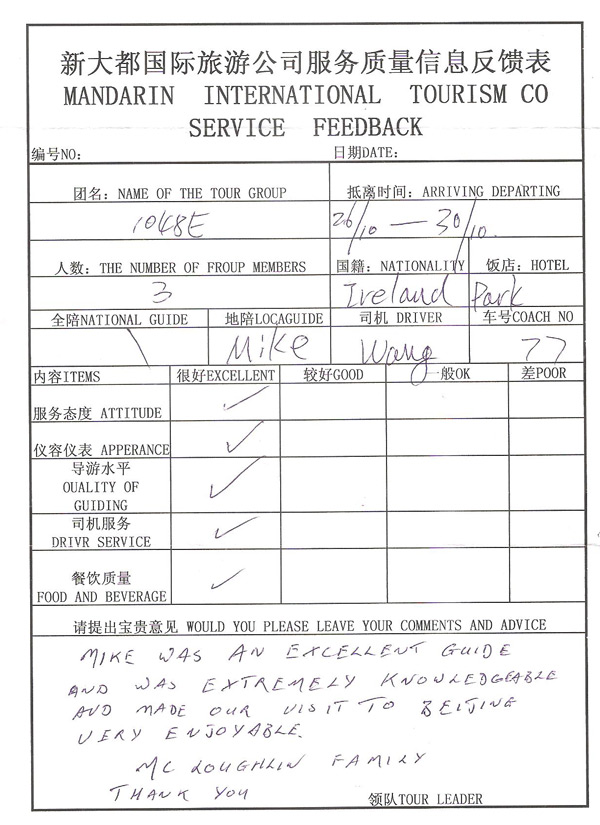 新大都国际旅游公司服务质量信息反馈表
MANDARIN INTERNATIONAL TOURISM CO
SERVICE FEEDBACK
编号NO: 日期DATE:
团名: NAME OF THE TOUR GROUP 抵离时间: ARRIVING DEPARTING
1048E 26/10 — 30/10.
人数: THE NUMBER OF FROUP MEMBERS 国籍: NATIONALITY 饭店: HOTEL
3 Ireland Park
全陪NATIONAL GUIDE 地陪LOCAGUIDE 司机 DRIVER 车号COACH NO
\ Mike Wang 77
内容ITEMS 很好EXCELLENT 较好GOOD 一般OK 差POOR
服务态度 ATTITUDE ✓
仪容仪表 APPERANCE ✓
导游水平
OUALITY OF
GUIDING ✓
司机服务
DRIVR SERVICE ✓
餐饮质量
FOOD AND BEVERAGE ✓
请提出宝贵意见 WOULD YOU PLEASE LEAVE YOUR COMMENTS AND ADVICE
MIKE WAS AN EXCELLENT GUIDE
AND WAS EXTREMELY KNOWLEDGEABLE
AND MADE OUR VISIT TO BEIJING
VERY ENJOYABLE.
MC LOUGHLIN FAMILY
THANK YOU
领队TOUR LEADER